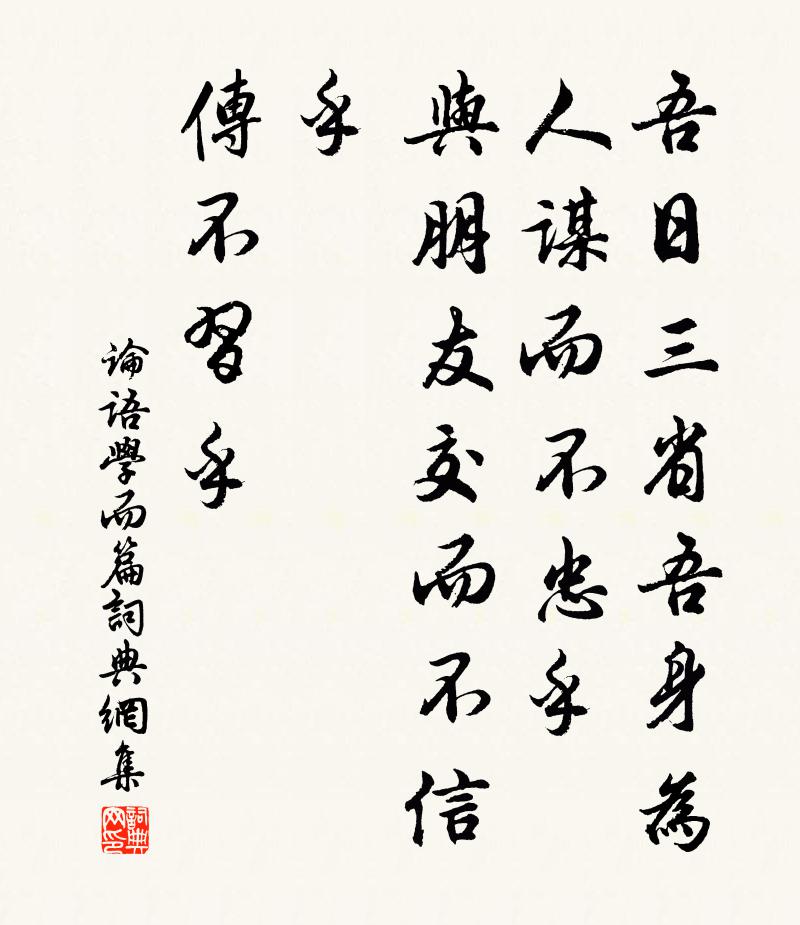 吾日三省吾身為
人謀而不忠乎
與朋友交而不信
乎
傳不習乎
論語學而篇詞典網集
詞典
网印